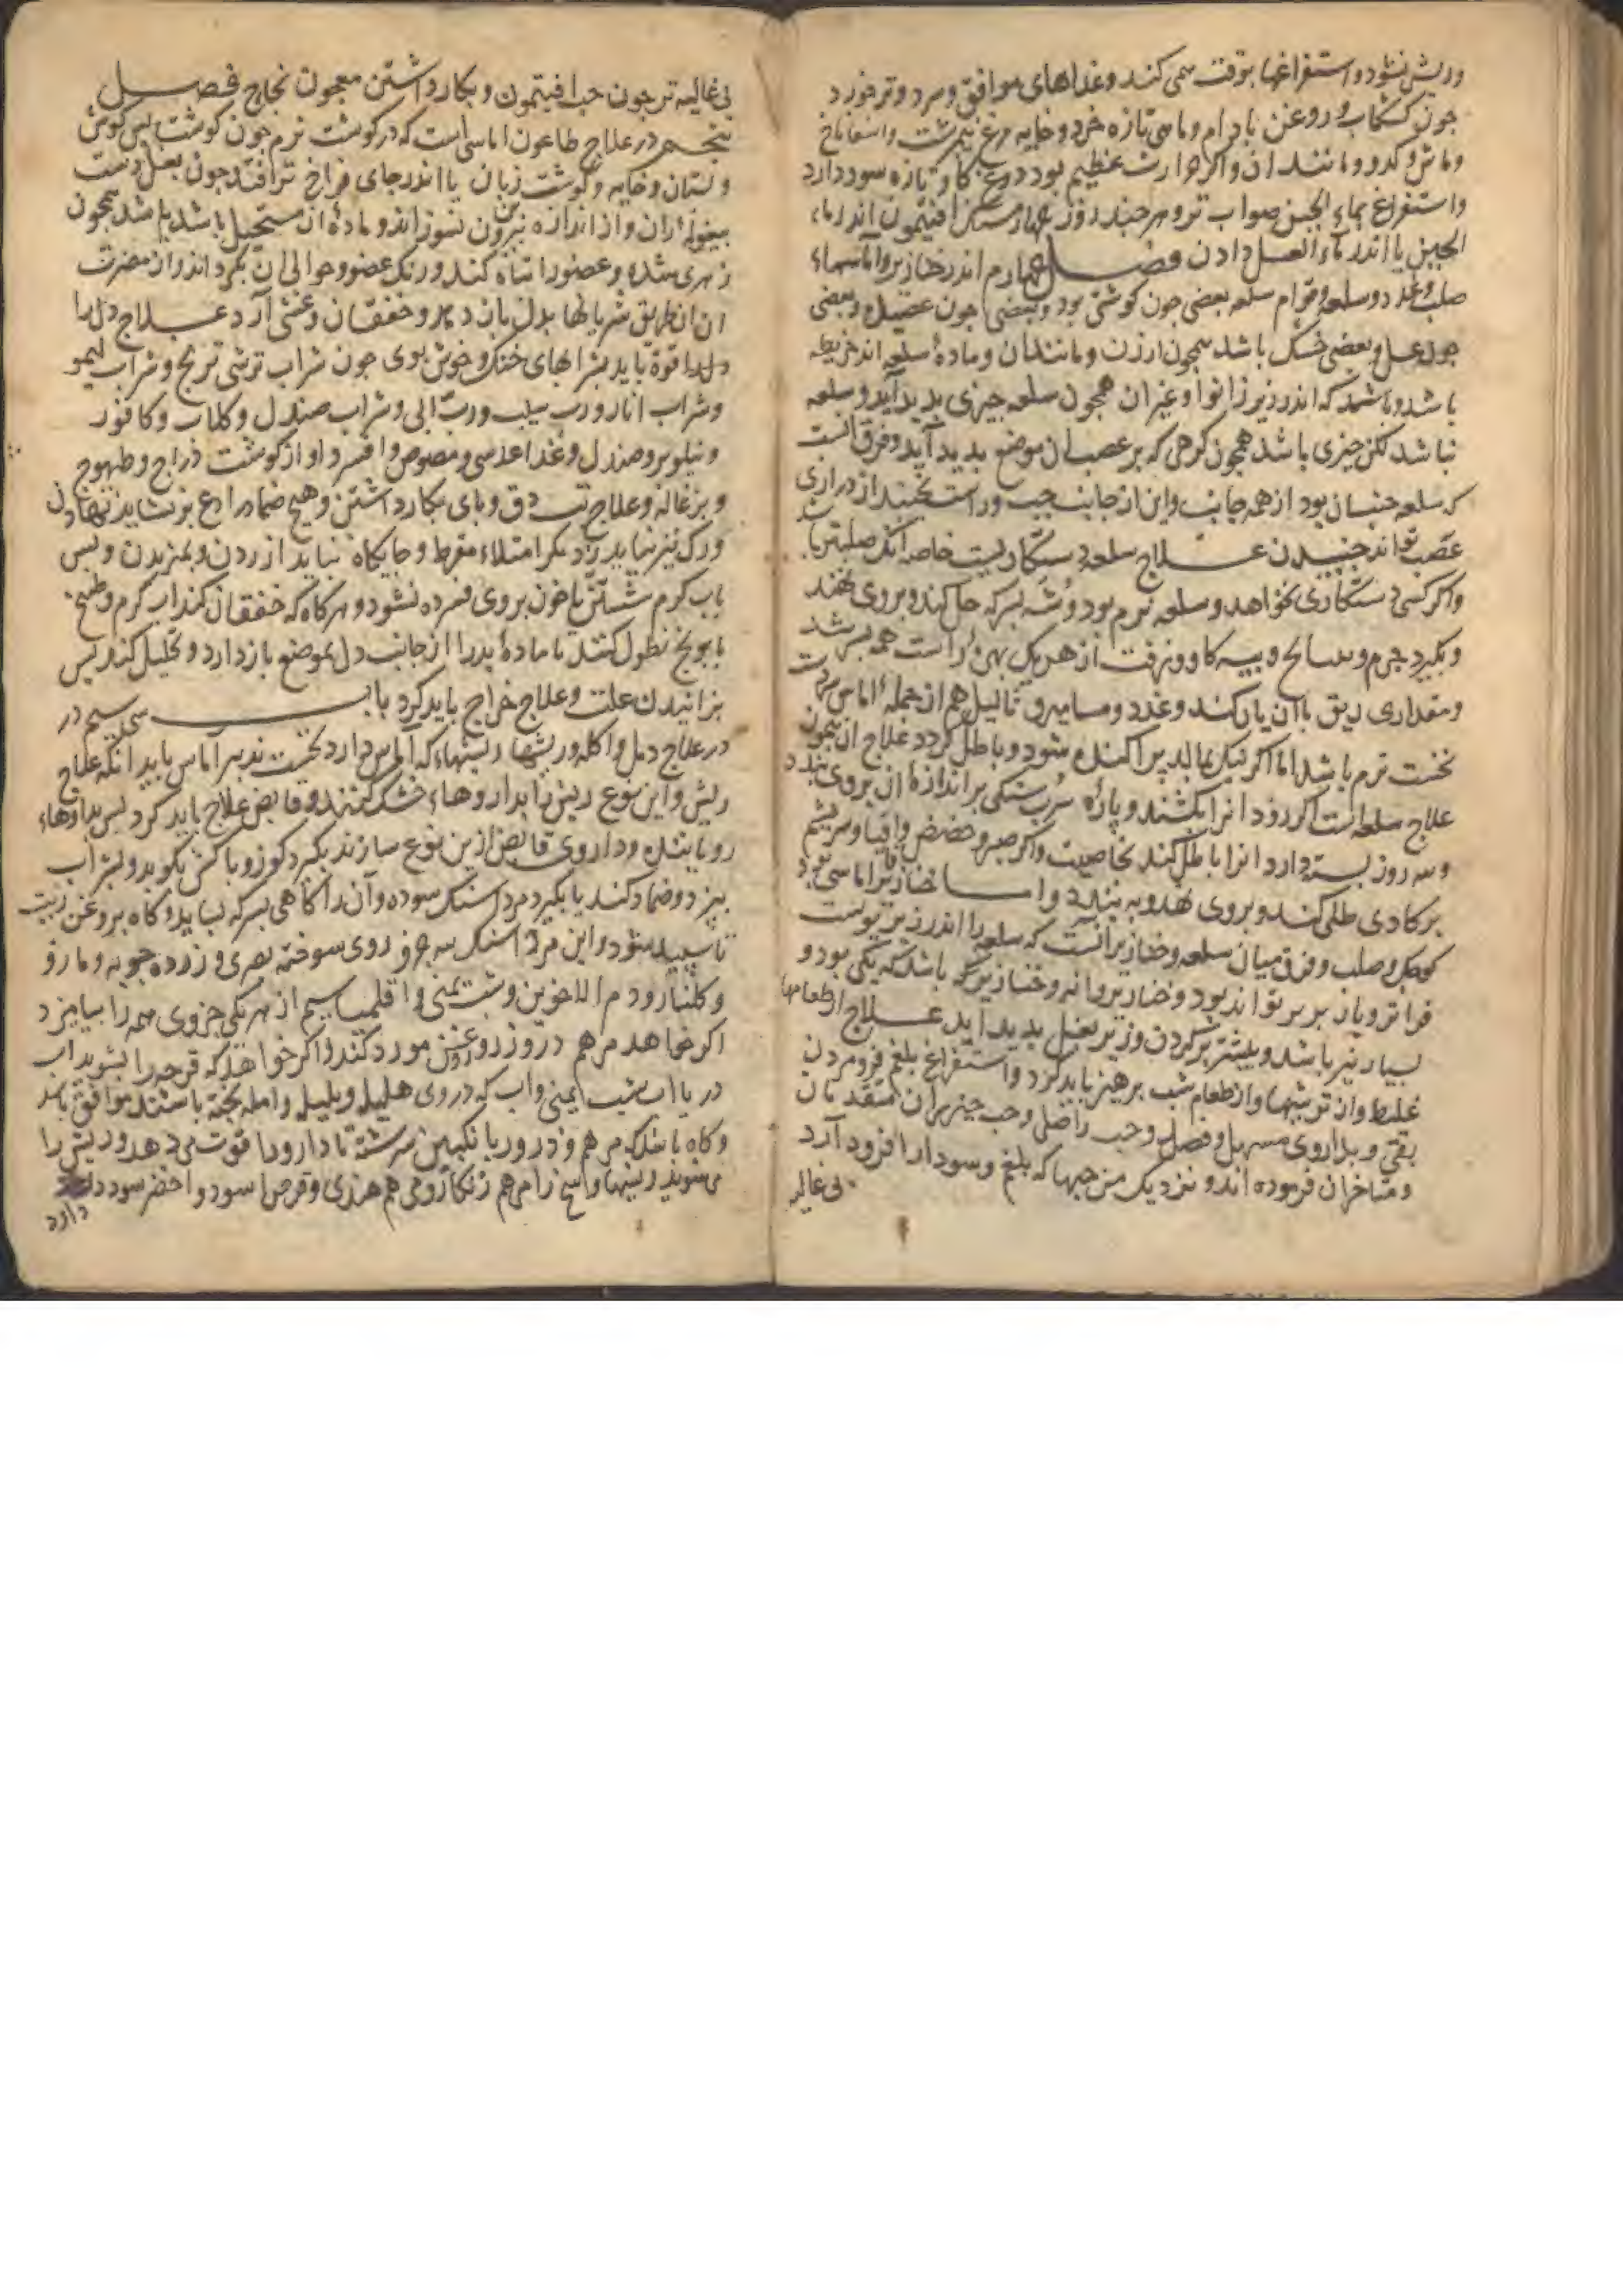 وریش نشود و استفراغها بوقت می کند و غذاهای موافق و سرد و تر خورد
جون کشکاب و روغن بادام و ماهی تازه خرد و خایه مرغ نیم برشت و اسفاناخ
و ماش و کدو و مانند ان و اکر حرارت عظیم بود دوغ کاو تازه سود دارد
و استفراغ بماء الجبن صواب تر و هر جند روز افتیمون اندر ماء
الجبن یا اندر ماء العسل دادن فصل جهارم اندر خنازیر و اماسهاء
صلب و غدد و سلعه و قوام سلعه بعضی جون کوشتی بود و بعضی جون عصیده و بعضی
جون عسل و بعضی خشک باشد همجون ارزن و مانند ان و ماده سلعه اندر خریطه
باشد و باشد که اندر زیر زانو و غیر ان همجون سلعه جیزی پدید آید و سلعه
نباشد لکن جیزی باشد همجون کرهی که بر عصب ان موضع بدید آید و فرق انست
که سلعه جنبان بود از همه جانب و این از جانب جب و راست جنبد از درازی
عصب نتواند جنبیدن علاج سلعه دستکاریست خاصه انک صلبتر باشد
و اکر کسی دستکاری نخواهد و سلعه نرم بود وشه بسرکه حل کند و بروی نهند
و بکیرد جرم و پیه کاو و زفت از هر یکی بهری راست همه بسرشد
و مقداری ریق با ان یار کند و غدد و مسامیر و ثالیل هم از جمله اماس
نخست نرم باشد اما اکر نیک بمالد پراکنده شود و باطل کردد علاج ان همجون
علاج سلعه است اکر زود انرا بکشند و پاره سرب سنکی بر اندازه ان بروی بندد
و سه روز بسته دارد انرا باطل کند بخاصیت و اکر صبر و حضض و اقاقیا و سریشم
برکادی طلی کند و بروی نهد و به بندد و اما خنازیر اماسی بود
کوجک و صلب و فرق میان سلعه و خنازیر انست که سلعه را اندر زیر پوست
فراتر و باز بر بر تواند بود و خنازیر را نه و خنازیر باشد که یکی بود و
بسیار نیز باشد و بیشتر بر کردن و زیر بغل بدید اید علاج از طعامها
غلیظ و از ترشیها و از طعام شب پرهیز باید کرد و استفراغ بلغم فرمودن
بقی و بداروی مسهل و فصد و حب راضی و حب جیزیران متقدمان
و متاخران فرموده اند و نزدیک من حبها که بلغم و سودا را فرود آرد
بی غائله
بی غائله تر جون حب افتیمون و بکار داشتن معجون نجاح فصل
پنجم در علاج طاعون اماسی است که در کوشت نرم جون کوشت پس کوش
و پستان و خایه و کوشت زبان یا اندر جای فراخ تر افتد جون بغل دست
بیغوله ران و از اندازه بیرون سوزاند و ماده ان مستحیل باشد باشد همجون
زهری شده و عضو را تباه کند و رنک عضو و حوالی ان بکرداند و از مضرت
ان از طریق شریانها بدل باز دهد و خفقان و غشی آرد علاج دل را
قوة باید بشرابهای خنک و خوش بوی جون شراب ترشی ترنج و شراب لیمو
و شراب انار و رب سیب و رب ابی و شراب صندل و کلاب و کافور
و نیلوفر و صندل و غذا عدسی و مصوص و افسرد او از کوشت دراج و طیهوج
و بزغاله و علاج تب دق و بای بکار داشتن و هیج ضماد رادع بر نشاید نهادن
و رک نیز نباید زد مکر امتلاء مفرط و جایکاه نباید ازردن و بمزیدن و پس
باب کرم شستن تا خون بروی فسرده نشود و هرکاه که خفقان کند اب کرم و طبیخ
بابونج نطول کنند تا ماده بد را از جانب دل بموضع باز دارد و تحلیل کند پس
بزانیدن علت و علاج خراج باید کرد باب سی و سیم در
در علاج دمل و اکله و ریشها ریشهاء که آماس دارد نخست تدبیر آماس باید انکه علاج
ریش و این نوع ریش را بداروهاء خشک کننده و قابض علاج باید کرد پس بداروهاء
رویاننده و داروی قابض ازین نوع سازند بکیرد کوز و باکش بکوبد و بشراب
بپزد و ضماد کند یا بکیرد مرداسنک سوده و آن را کاهی بسرکه بساید و کاه بروغن زیت
تا سپید شود و این مرداسنک سه جزو روی سوخته بصری و زرده جوبه و مازو
و کلنار و دم الاخوین و شب یمنی و اقلیمیا سیم از هر یکی جزوی همه را بیامیزد
اکر خواهد مرهم دروز روغن مورد کند و اکر خواهد که قرحه را بشوید اب
دریا اب شب یمنی و اب که در وی هلیله و بلیله و امله پخته باشند موافق باشد
و کاه باشد که مرهم و ذرور بانکبین سرشته تا دارو را قوت می دهد و ریش را
می شوید و ریشها و اسخ را مرهم زنکار و مرهم هندی و قرص اسود و اخضر سود
دارد